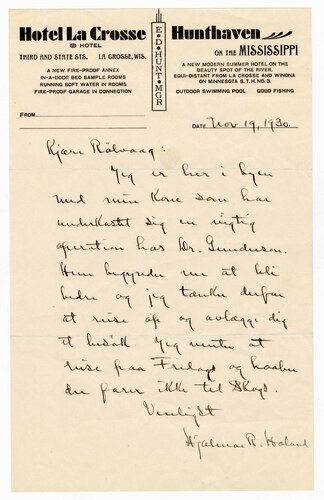 Hotel La Crosse
@ HOTEL
THIRD AND STATE STS. LA CROSSE, WIS.
A NEW FIRE-PROOF ANNEX
IN-A-DOOR BED SAMPLE ROOMS
RUNNING SOFT WATER IN ROOMS
FIRE-PROOF GARAGE IN CONNECTION
E.D. HUNT MGR
Hunthaven
ON THE MISSISSIPPI
A NEW MODERN SUMMER HOTEL ON THE
BEAUTY SPOT OF THE RIVER.
EQUI-DISTANT FROM LA CROSSE AND WINONA
ON MINNESOTA S.T.H. NO. 3.
OUTDOOR SWIMMING POOL GOOD FISHING
FROM
DATE Nov 19, 1930.
Kjære Rølvaag:
Jeg er her i byen
med min Kone som har
underkastet sig en vigtig
operation hos Dr. Gundersen.
Hun begynder nu at bli
bedre og jeg tænker derfor
at reise op og avlægge dig
et besøk. Jeg venter at
reise paa Fredag og haaber
du farer ikke til Skogs.
Venligst
Hjalmar R. Holand